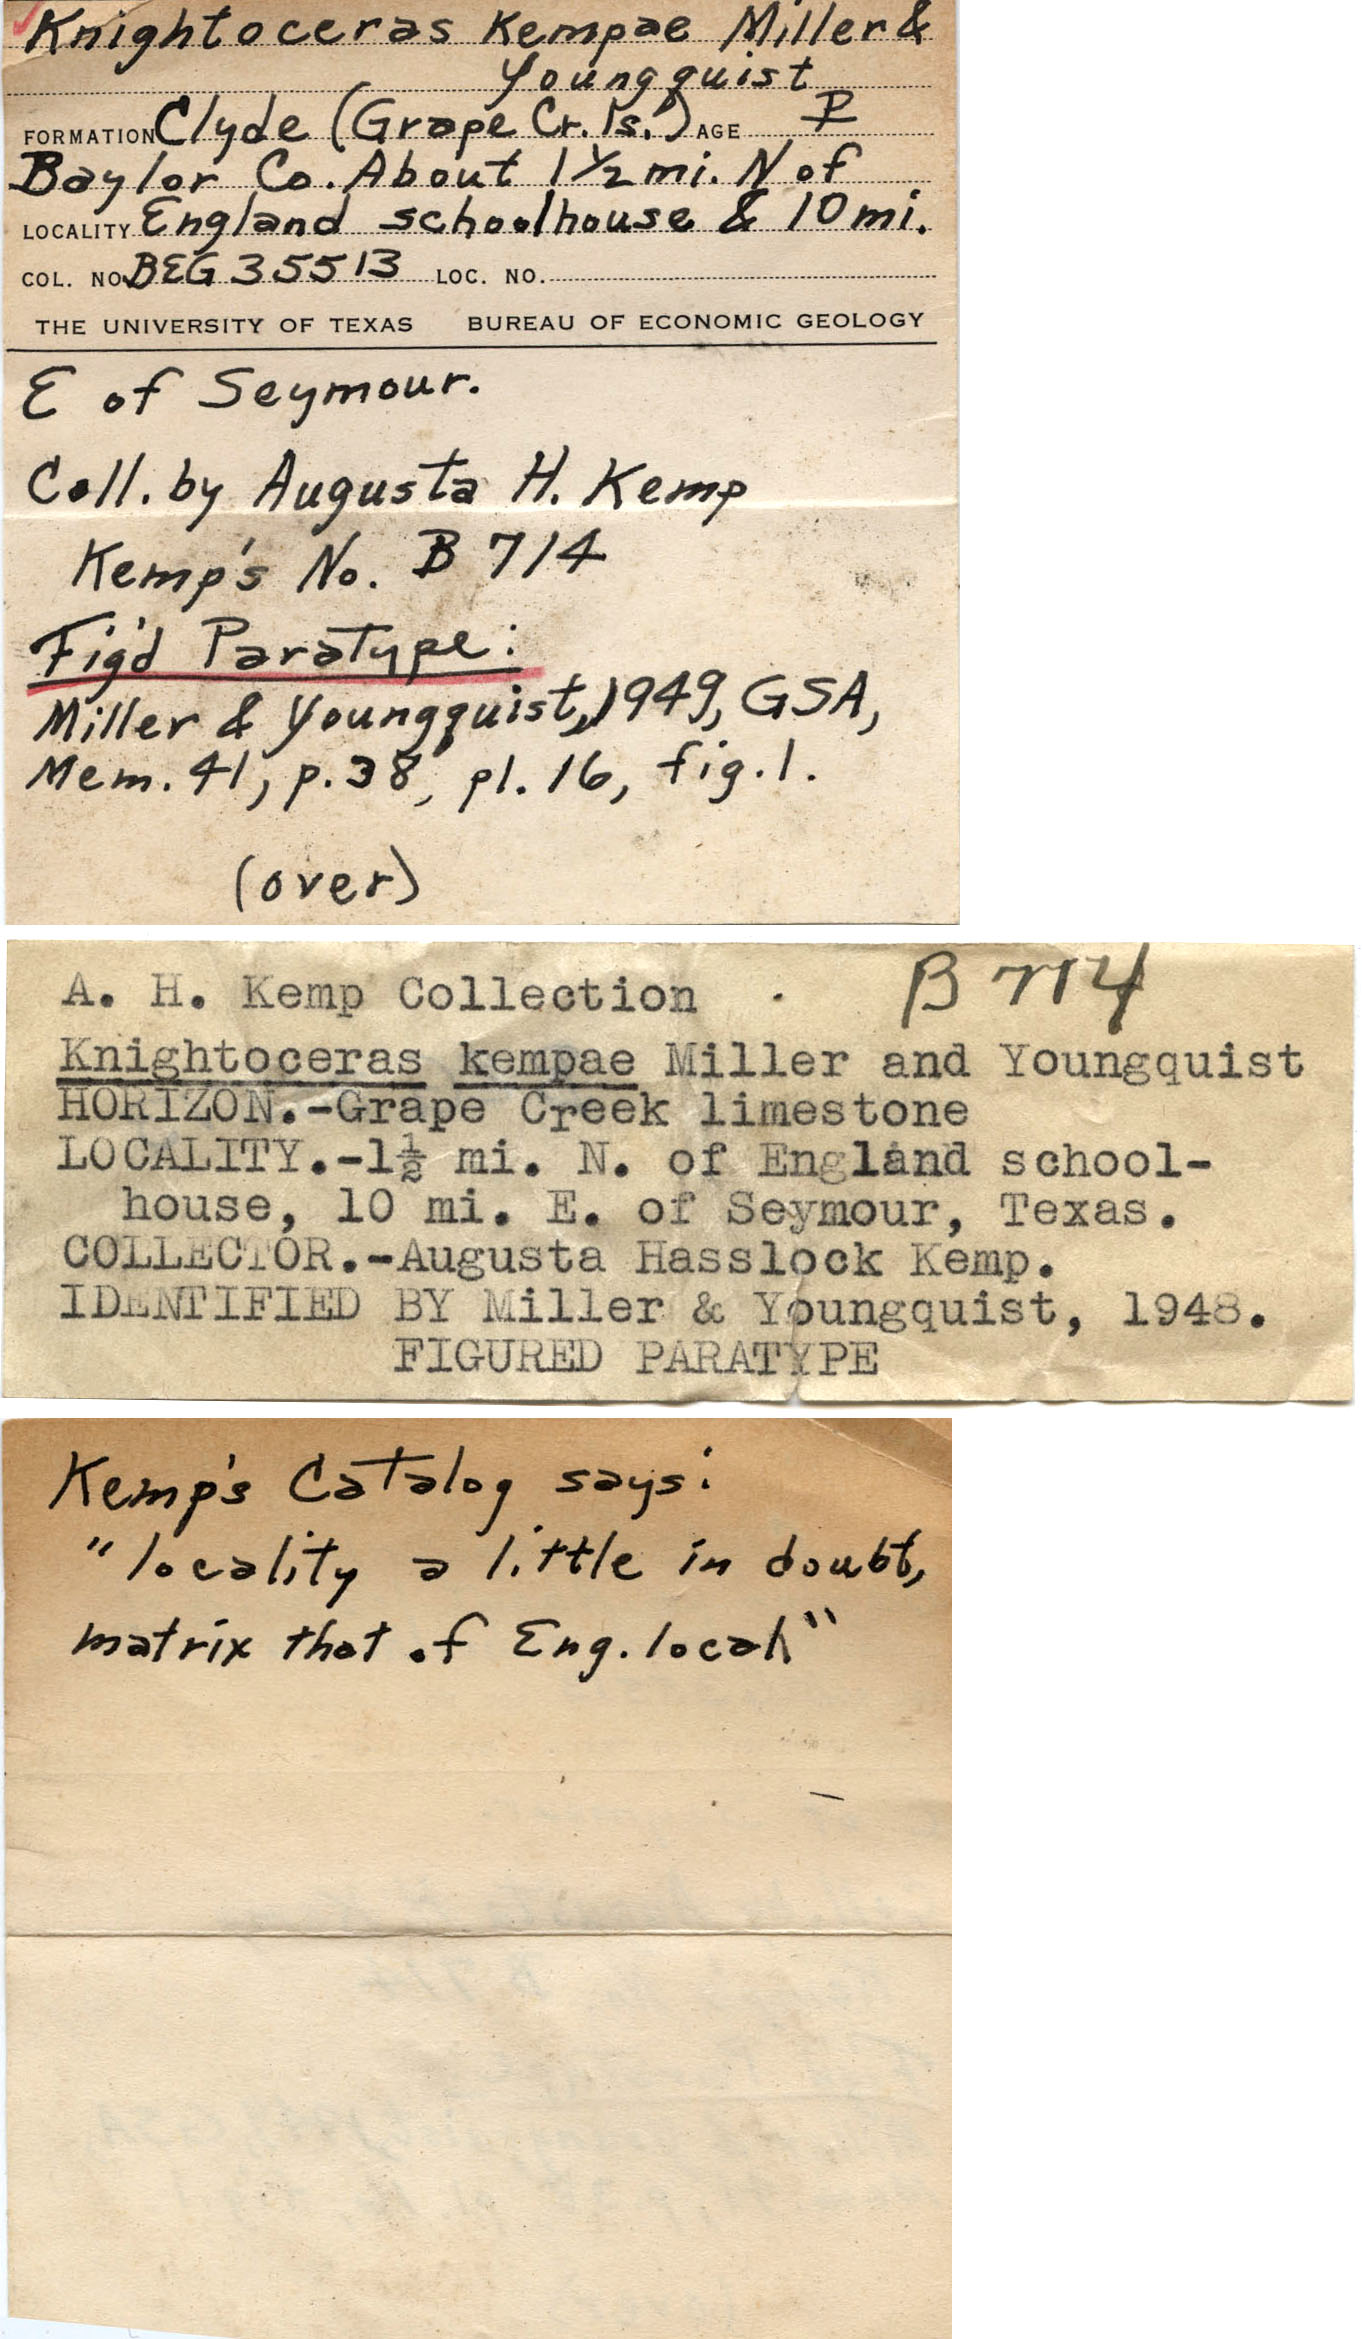 Knightoceras Kempae Miller &
Youngquist
FORMATION Clyde (Grape Cr. ls.) AGE P
Baylor Co. About 1 1/2 mi. N of
LOCALITY England schoolhouse & 10 mi.
COL. NO. BEG 35513 LOC. NO.
THE UNIVERSITY OF TEXAS BUREAU OF ECONOMIC GEOLOGY
E of Seymour.
Coll. by Augusta H. Kemp
Kemp's No. B 714
Fig'd Paratype:
Miller & Youngquist, 1949, GSA,
Mem. 41, p. 38, pl. 16, fig. 1.
(over)
A. H. Kemp Collection . B 714
Knightoceras kempae Miller and Youngquist
HORIZON.-Grape Creek limestone
LOCALITY.-1½ mi. N. of England school-
house, 10 mi. E. of Seymour, Texas.
COLLECTOR.-Augusta Hasslock Kemp.
IDENTIFIED BY Miller & Youngquist, 1948.
FIGURED PARATYPE
Kemp's Catalog says:
"locality a little in doubt,
matrix that of Eng. local"